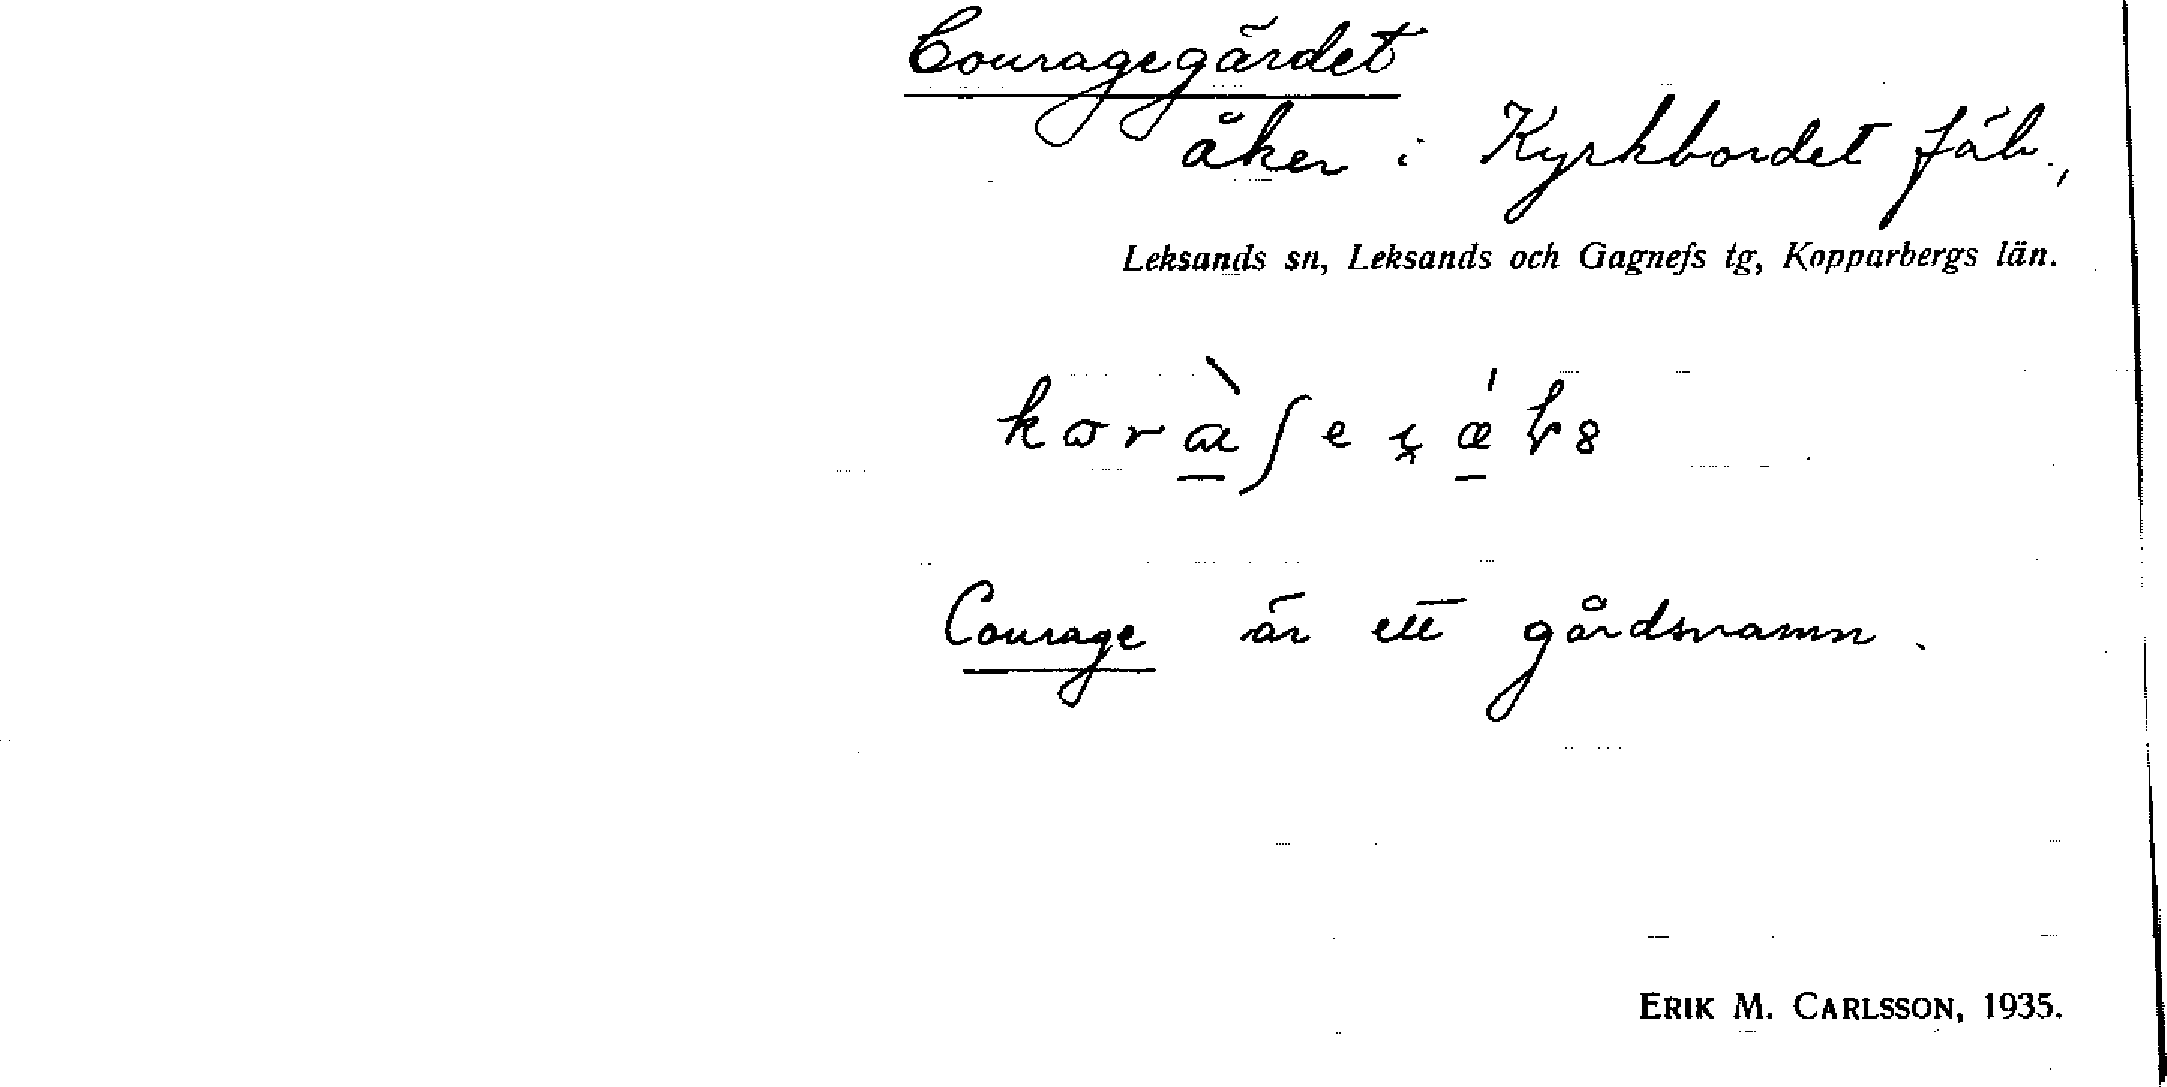 Couragegärdet
åker i Kyrkbordet fäb.,
Leksands sn, Leksands och Gagnefs tg, Kopparbergs län.
Courage är ett gårdsnamn.
ERIK M. CARLSSON, 1935.